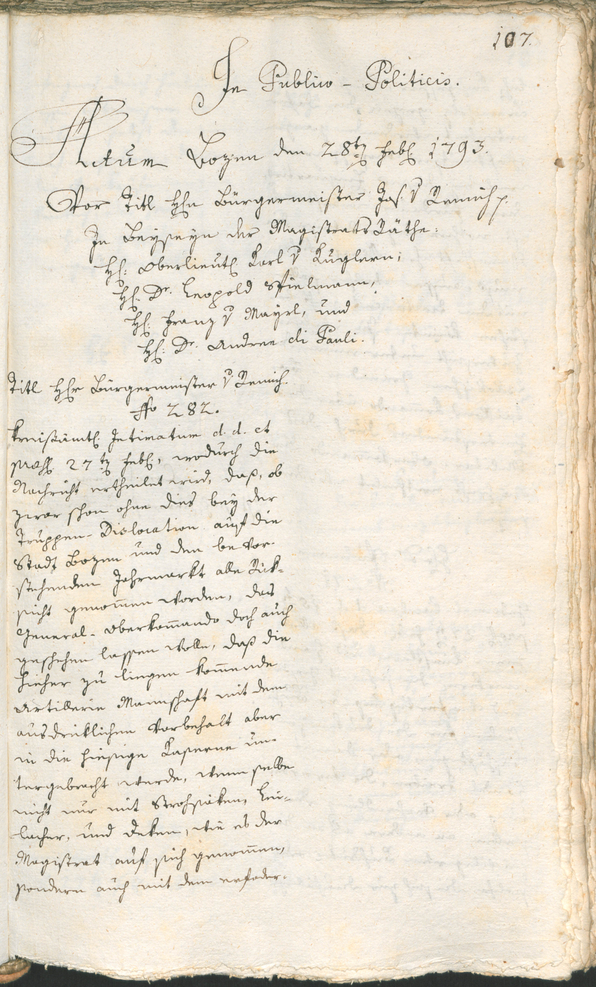 107.
In Publico - Politicis.
Actum Bozen den 28ten Febr 1793.
Vor Titl Hhn Bürgermeister Jos v Remich p.
In Beyseyn der Magistrats Räthe:
Hh. Oberlieut Karl v Kuglern;
Hh. Dr. Leopold Stielmann,
Hh. Franz v Mayrl, und
Hh. Dr. Andree di Pauli.
Titl Hhr Bürgermeister v Remich.
No 282.
Kreisämtl Intimatum d. d. et
praess. 27ten Febr, wodurch die
Nachricht ertheilet wird, daß, ob
zwar schon ohne dies bey der
Truppen-Dislocation auf die
Stadt Bozen und den bevor-
stehenden Jahrmarkt alle Rük-
sicht genommen worden, das
General-Oberkommando doch auch
geschehen lassen wolle, daß die
hieher zu liegen kommende
Artillerie Mannschaft mit dem
ausdrüklichen Vorbehalt aber
in die hiesige Caserne un-
tergebracht werde, wenn selbe
nicht nur mit Strohsäken, Lei-
lacher, und Deken, wie es der
Magistrat auf sich genommen,
sondern auch mit dem erforder-